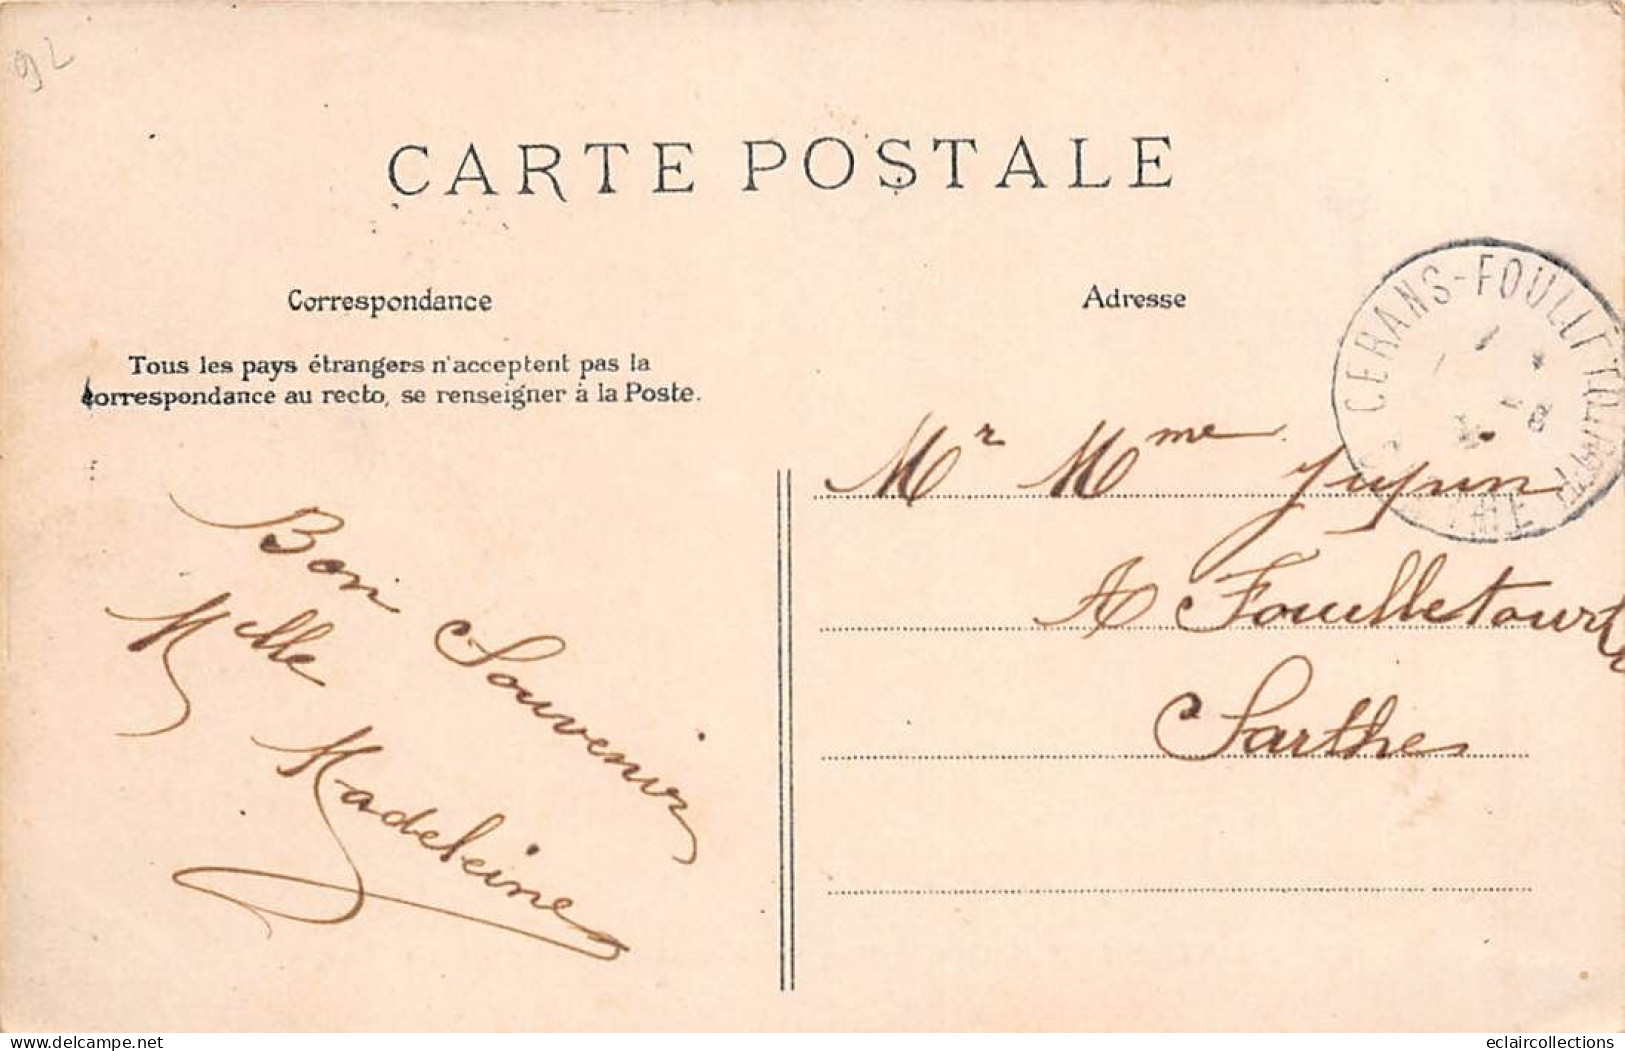 92
CARTE POSTALE
Correspondance
Tous les pays étrangers n'acceptent pas la
correspondance au recto, se renseigner à la Poste.
Bon Souvenir
Melle Madeleine
Adresse
CERANS-FOULLETOURTE
Mr Mme
A Foulletourte
Sarthe
eclaircollections